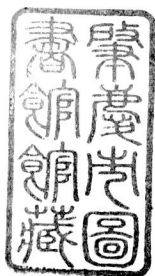 肇慶市圖
書館館藏